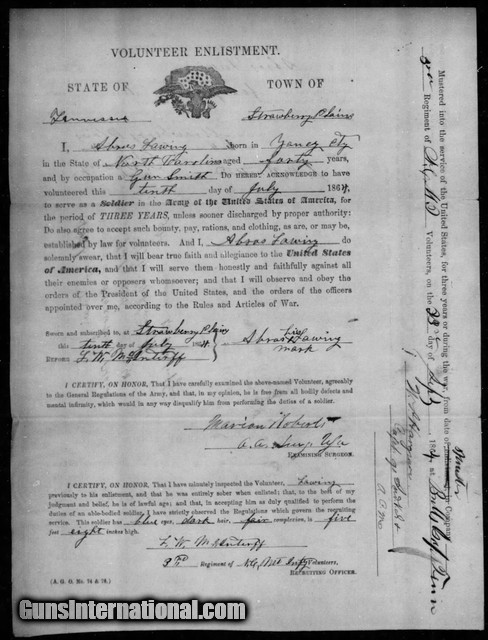 VOLUNTEER ENLISTMENT.
STATE OF TOWN OF
Tennessee Strawberry Plains
I, Abras Lawing Born in Yancy Cty
in the State of North Carolina aged forty years,
and by occupation a Gun Smith DO HEREBY ACKNOWLEDGE to have
volunteered this tenth day of July 1864,
to serve as a Soldier in the Army of the United States of America, for
the period of THREE YEARS, unless sooner discharged by proper authority:
Do also agree to accept such bounty, pay, rations, and clothing, as are, or may be,
established by law for volunteers. And I, Abras Lawing do
solemnly swear, that I will bear true faith and allegiance to the United States
of America, and that I will serve them honestly and faithfully against all
their enemies or opposers whomsoever; and that I will observe and obey the
orders of the President of the United States, and the orders of the officers
appointed over me, according to the Rules and Articles of War.
Sworn and subscribed to, at Strawberry Plains
this tenth day of July 1864, Abras his Lawing
BEFORE mark
I CERTIFY, ON HONOR, That I have carefully examined the above-named Volunteer, agreeably
to the General Regulations of the Army, and that, in my opinion, he is free from all bodily defects and
mental infirmity, which would in any way disqualify him from performing the duties of a soldier.
Marion Roberts
EXAMINING SURGEON.
I CERTIFY, ON HONOR, That I have minutely inspected the Volunteer, Lawing
previously to his enlistment, and that he was entirely sober when enlisted; that, to the best of my
judgment and belief, he is of lawful age; and that, in accepting him as duly qualified to perform the
duties of an able-bodied soldier, I have strictly observed the Regulations which govern the recruiting
service. This soldier has blue eyes, dark hair, fair complexion, is five
feet eight inches high.
3rd Regiment of N.C. Volunteers,
RECRUITING OFFICER.
(A. G. O. No. 74 & 76.)
Mustered into the service of the United States, for three years or during the war, from date of
Regiment of Volunteers, on the day of July 1864, at
GunsInternational.com